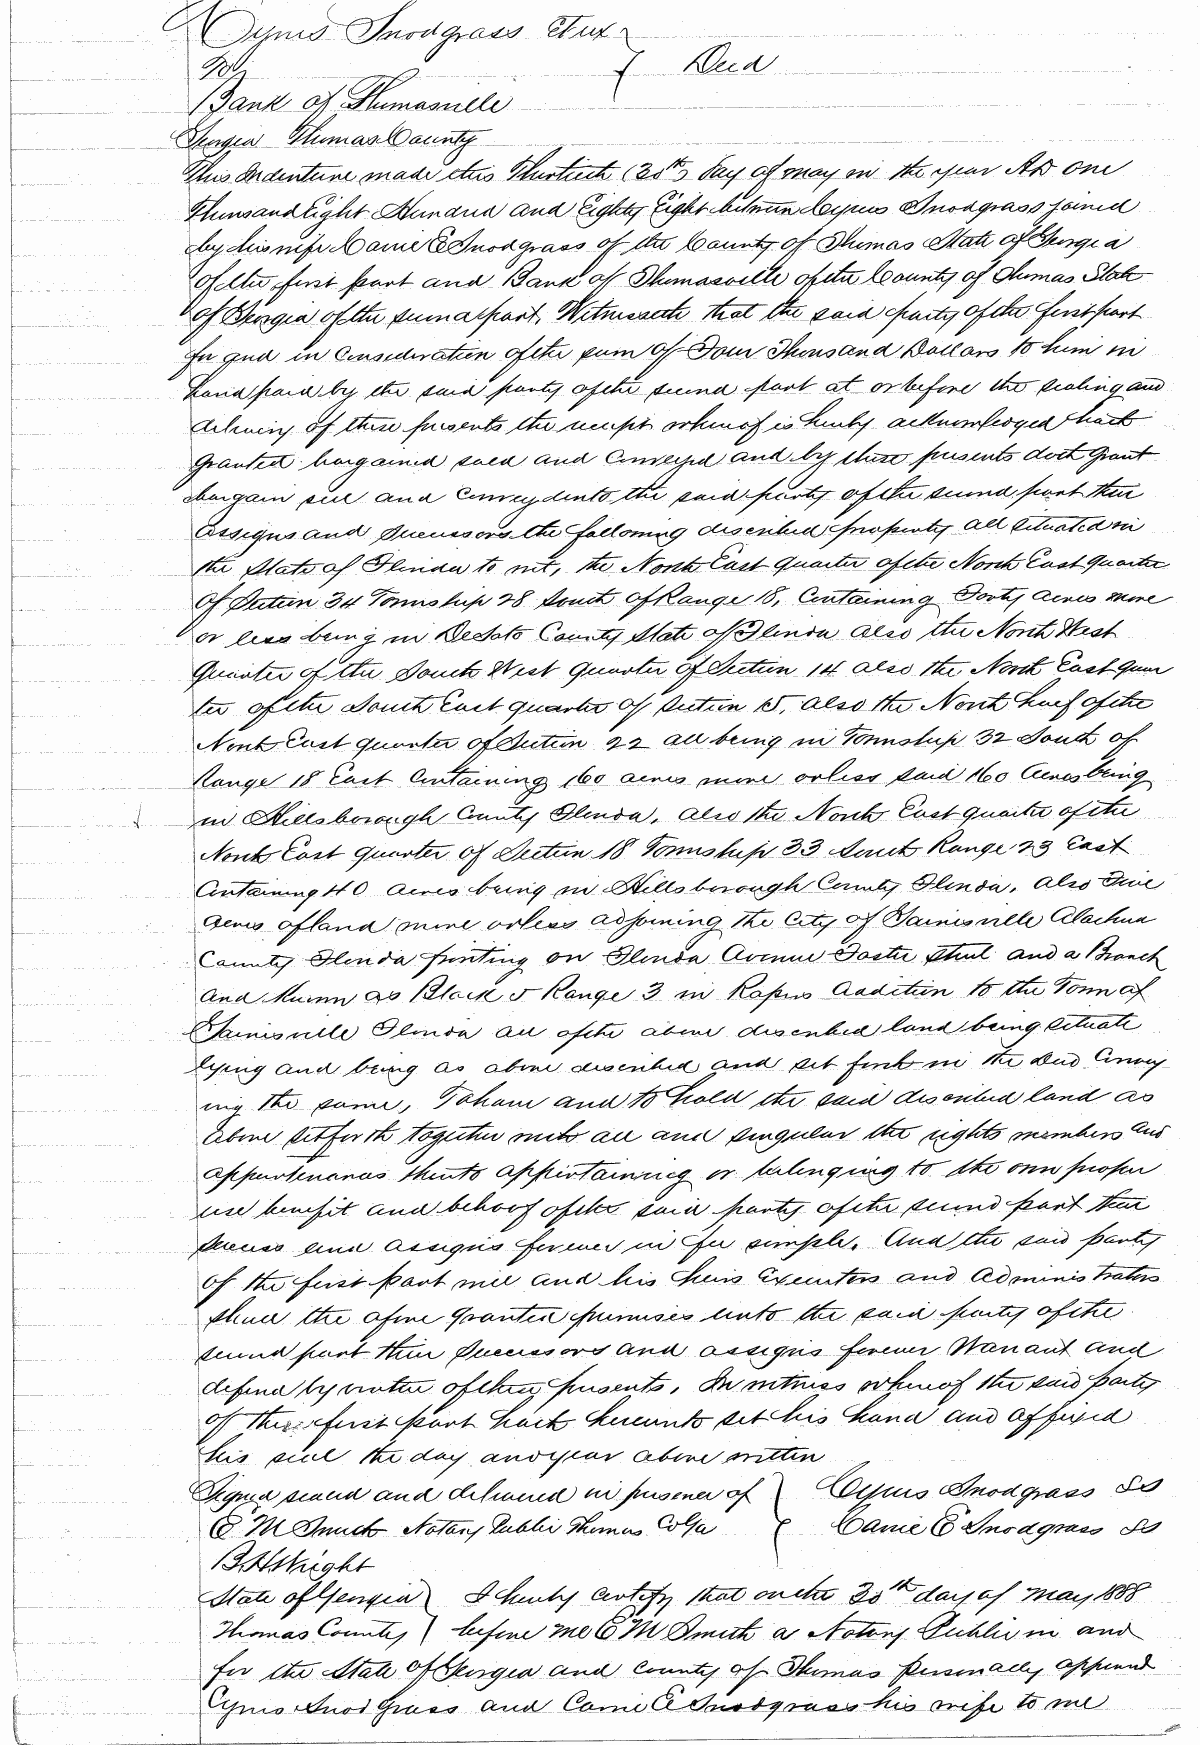 Cyrus Snodgrass et ux
To } Deed
Bank of Thomasville
Georgia Thomas County
This Indenture made this Thirtieth (30th) day of May in the year AD one
Thousand Eight Hundred and Eighty Eight between Cyrus Snodgrass joined
by his wife Carrie E Snodgrass of the County of Thomas State of Georgia
of the first part and Bank of Thomasville of the County of Thomas State
of Georgia of the second part, Witnesseth that the said party of the first part
for and in Consideration of the sum of Four Thousand Dollars to him in
hand paid by the said party of the second part at or before the sealing and
delivery of these presents the receipt whereof is hereby acknowledged hath
granted bargained sold and Conveyed and by these presents doth grant
bargain sell and Convey unto the said party of the second part their
assigns and successors the following described property all situated in
the State of Florida to wit, the North East quarter of the North East quarter
of Section 34 Township 28 South of Range 18, Containing Forty acres more
or less being in DeSoto County State of Florida also the North West
Quarter of the South West quarter of Section 14 also the North East quar
ter of the South East quarter of Section 15, also the North half of the
North East quarter of Section 22 all being in Township 32 South of
Range 18 East Containing 160 acres more or less said 160 Acres being
in Hillsborough County Florida, also the North East quarter of the
North East quarter of Section 18 Township 33 South Range 23 East
Containing 40 acres being in Hillsborough County Florida, also Five
acres of land more or less adjoining the City of Gainisville Alachua
County Florida fronting on Florida Avenue Foster Street and a Branch
and known as Block 5 Range 3 in Rapers Addition to the Town of
Gainisville Florida all of the above described land being situate
lying and being as above described and set forth in the Deed Convey
ing the same, To have and to hold the said described land as
above set forth together with all and singular the rights members and
appurtenances thereto appertaining or belonging to the own proper
use benefit and behoof of the said party of the second part their
success and assigns forever in fee simple. And the said party
of the first part will and his heirs Executors and Administrators
shall the afore granted premises unto the said party of the
second part their successors and assigns forever Warrant and
defend by virtue of these presents. In witness whereof the said party
of the first part hath hereunto set his hand and affixed
his seal the day and year above written
Signed sealed and delivered in presence of } Cyrus Snodgrass SS
E M Smith Notary Public Thomas Co Ga { Carrie E Snodgrass SS
B.H. Wright
State of Georgia } I hereby certify that on the 30th day of May 1888
Thomas County } before me E M Smith a Notary Public in and
for the State of Georgia and County of Thomas personally appeared
Cyrus Snod Grass and Carrie E Snodgrass his wife to me